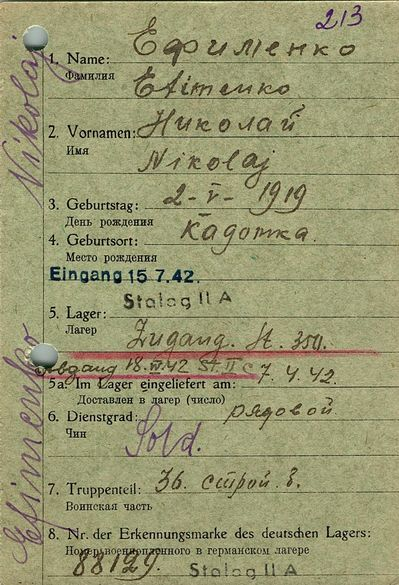 213
1. Name: Ефименко
Фамилия
Efimenko
2. Vornamen: Николай
Имя
Nikolaj
3. Geburtstag: 2-V-1919
День рождения
4. Geburtsort: Кадомка.
Место рождения
Eingang 15.7.42.
Stalag II A
5. Lager:
Лагерь
Zugang. St. 350.
Abgang 18.VI.42 St. II C
5a. Im Lager eingeliefert am: 7.4.42.
Доставлен в лагер (число)
6. Dienstgrad: рядовой
Чин
Sold.
7. Truppenteil: 36. строй. б.
Воинская часть
8. Nr. der Erkennungsmarke des deutschen Lagers:
Номер военнопленного в германском лагере
88129. Stalag II A
Efimenko Nikolaj